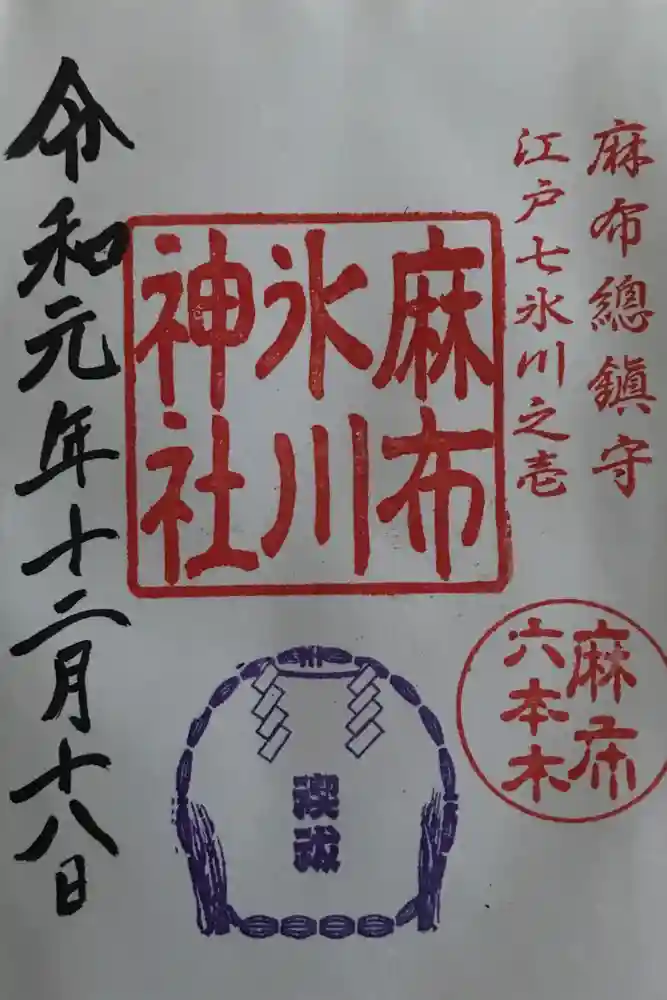 麻布總鎮守
江戸七氷川之壱
麻布
氷川
神社
麻布
六本木
禊祓
令和元年十二月十八日